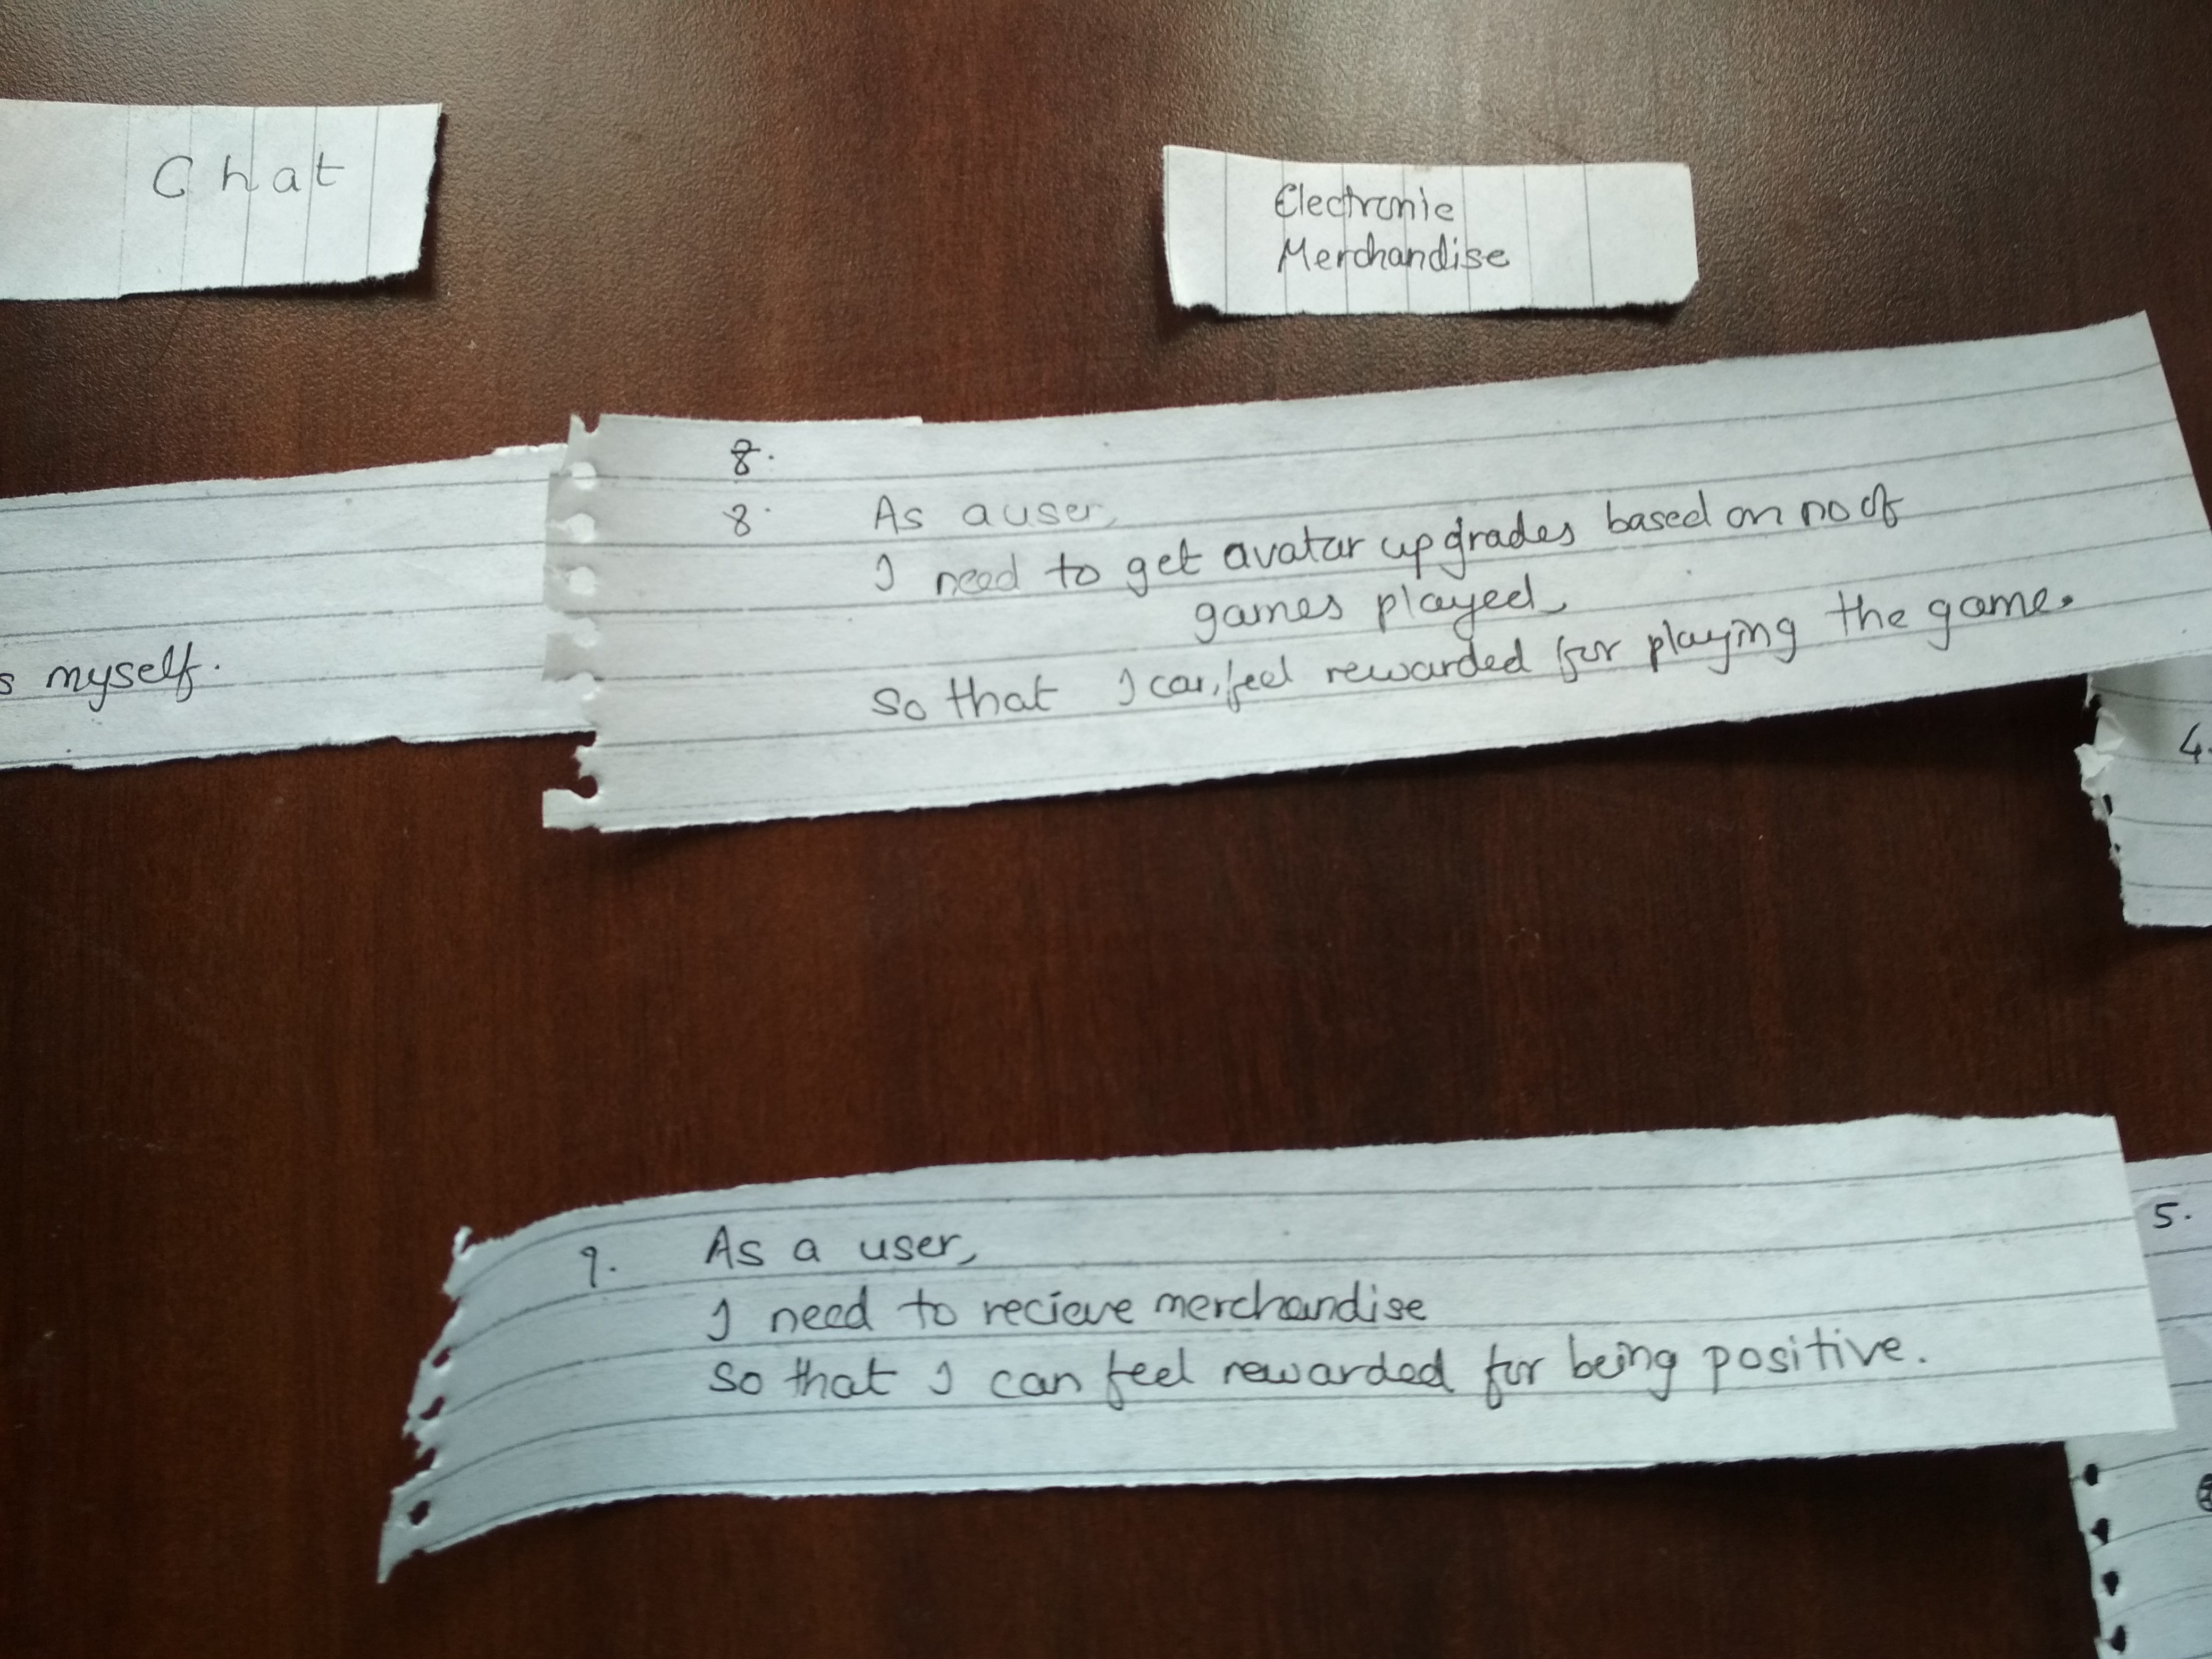 Chat
Electronic
Merchandise
s myself.
8.
8. As a user,
I need to get avatar upgrades based on no of
games played,
so that I can feel rewarded for playing the game.
4.
9. As a user,
I need to recieve merchandise
so that I can feel rewarded for being positive.
5.